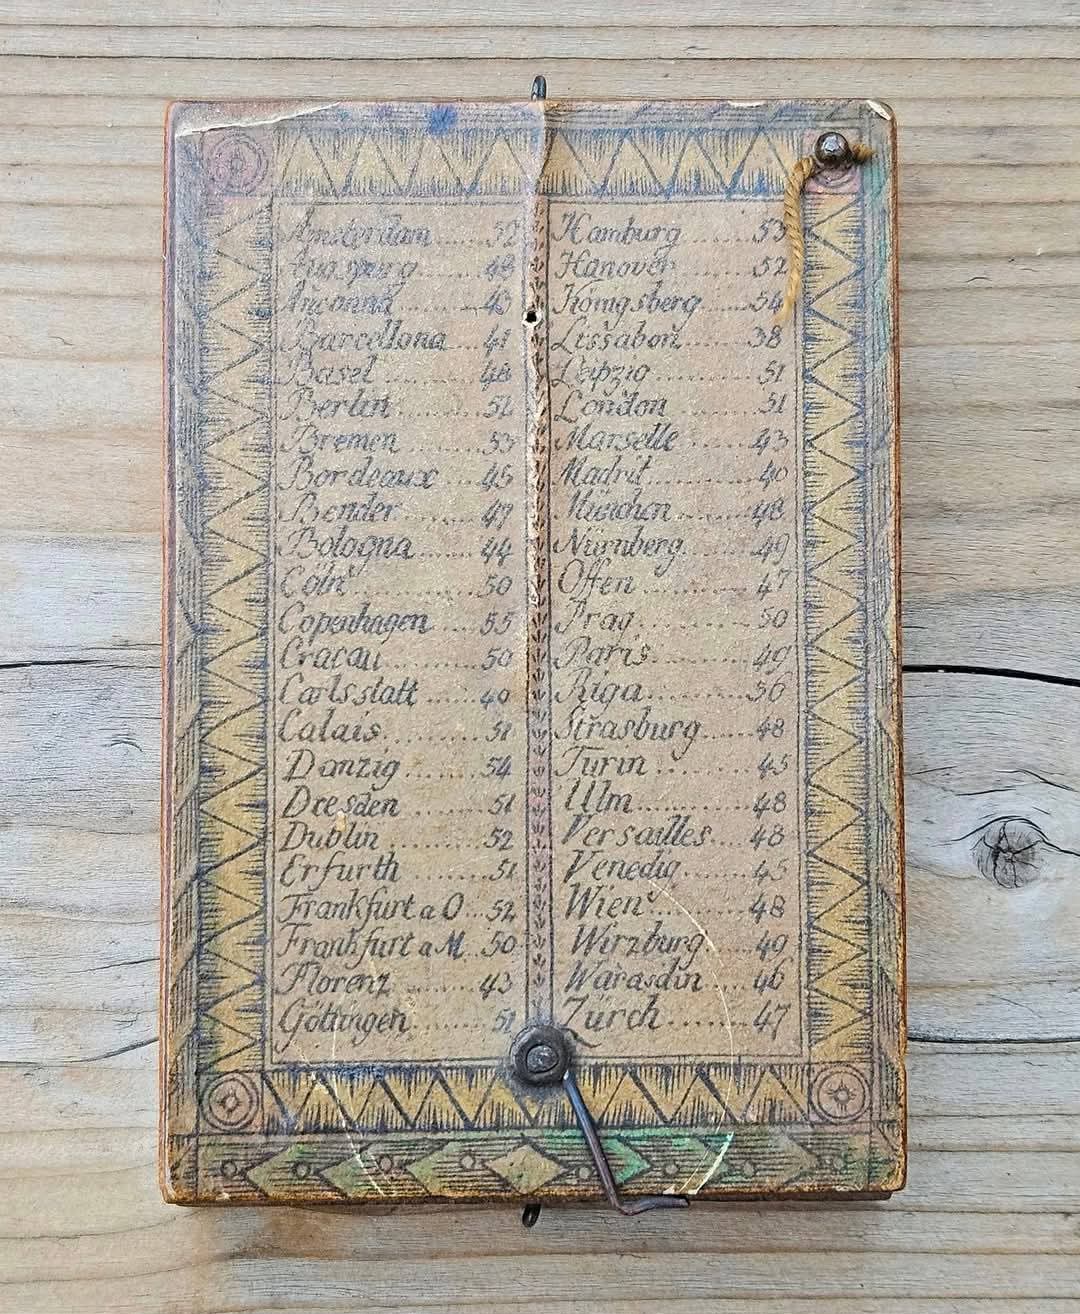 Amsterdam......52
Augspurg......48
Anconna......43
Barcellona....41
Basel..........48
Berlin.........52
Bremen........53
Bordeaux......45
Bender.........47
Bologna......44
Cöln...........50
Copenhagen....55
Cracau........50
Carlsstatt......40
Calais..........51
Danzig.......54
Dresden.......51
Dublin.........52
Erfurth........51
Frankfurt a O...52
Frankfurt a M..50
Florenz........43
Göttingen.......51
Hamburg........53
Hanover........52
Königsberg......54
Lissabon.......38
Leipzig.........51
London.........51
Marselle.......43
Madrit.........40
München.......48
Nürnberg......49
Offen..........47
Prag...........50
Paris..........49
Riga...........56
Strasburg......48
Turin..........45
Ulm............48
Versailles.....48
Venedig........45
Wien...........48
Wirzburg.....49
Warasdin.....46
Zürch.........47